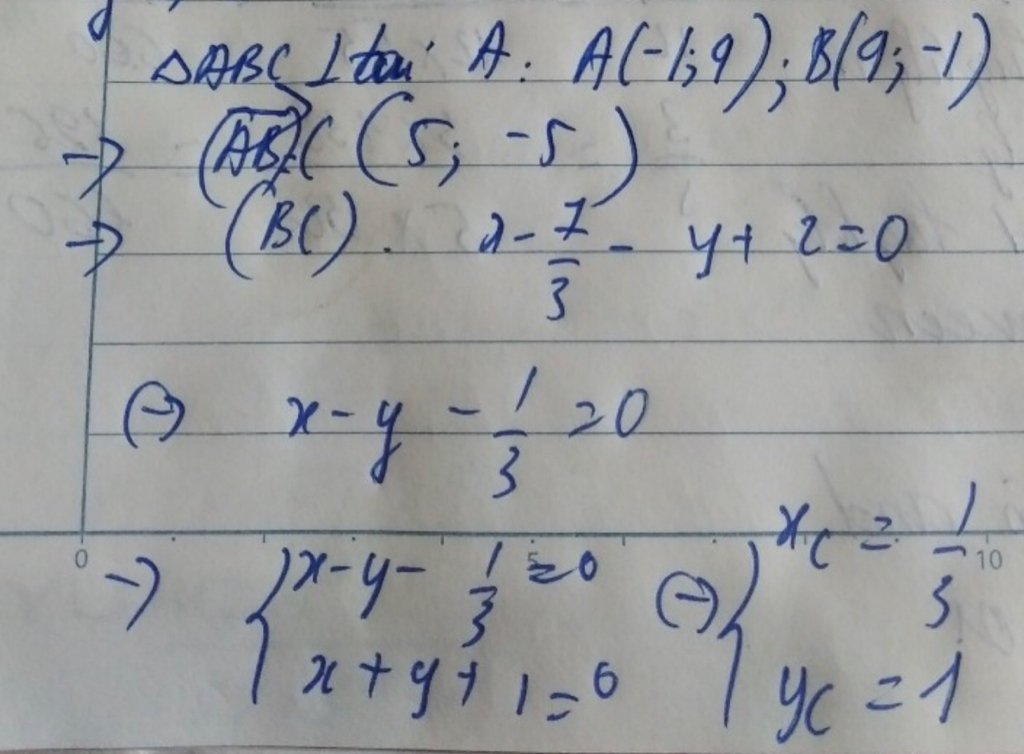 △ABC ⊥ tại A: A(-1;9); B(9;-1)
→ (AB)C (5; -5)
→ (BC). x - 7/3 - y + 2 = 0
(→) x - y - 1/3 = 0
→ { x - y - 1/3 = 0 (→) { x_C = 1/3
0 5 10
x + y + 1 = 0 y_C = 1